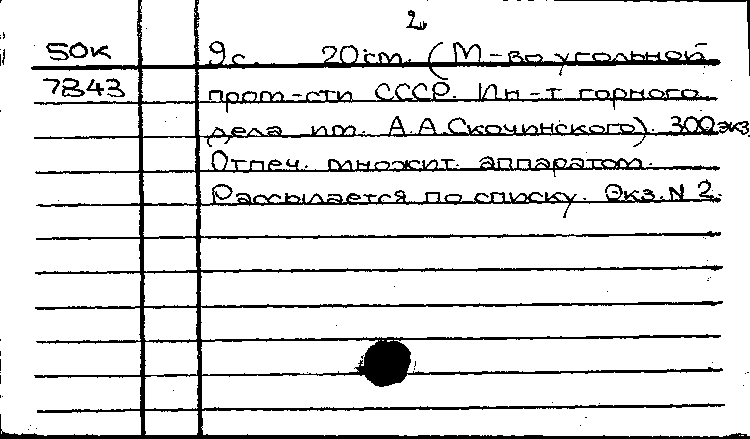 2
50к 9с. 20 см. (М-во угольной
7843 пром-сти СССР. Ин-т горного
дела им. А.А.Скочинского). 300экз
Отпеч. множит. аппаратом.
Рассылается по списку. Экз. N 2.